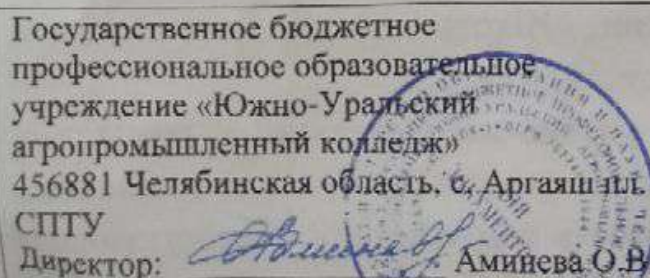 Государственное бюджетное
профессиональное образовательное
учреждение «Южно-Уральский
агропромышленный колледж»
456881 Челябинская область, с. Аргаяш пл.
СПТУ
Директор: Аминева О.В